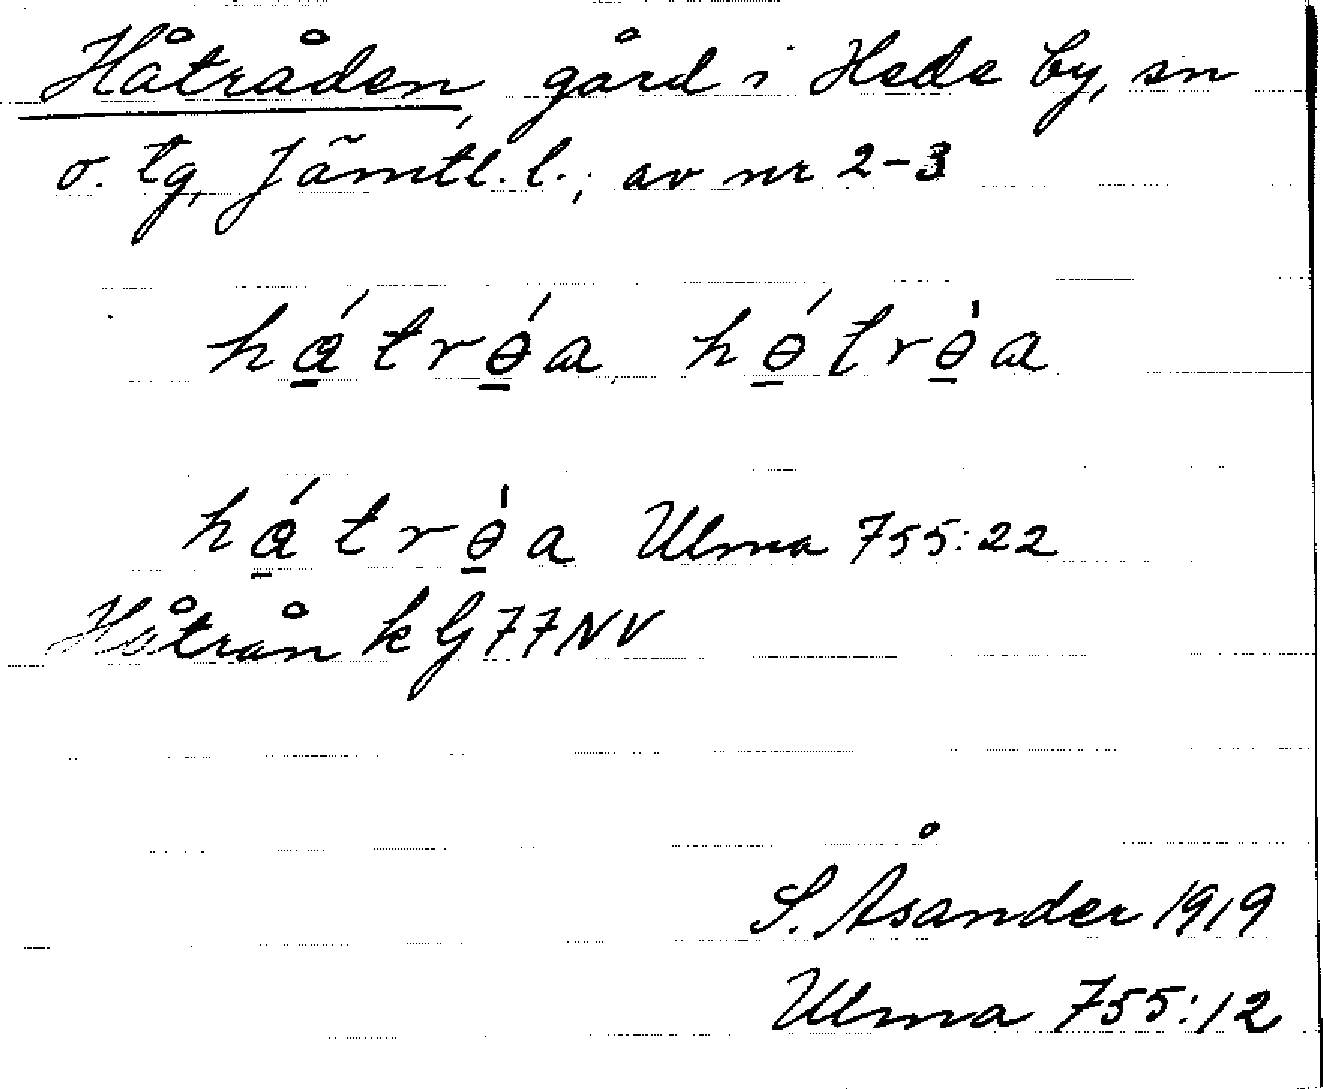 Håtråden, gård i Hede by, sn
o. tg, Jämtl. l., av nr 2-3
há̱trǿ̱a hǿ̱trò̱a
há̱trò̱a Ulma 755:22
Håtrån k G77NV
S. Åsander 1919
Ulma 755:12